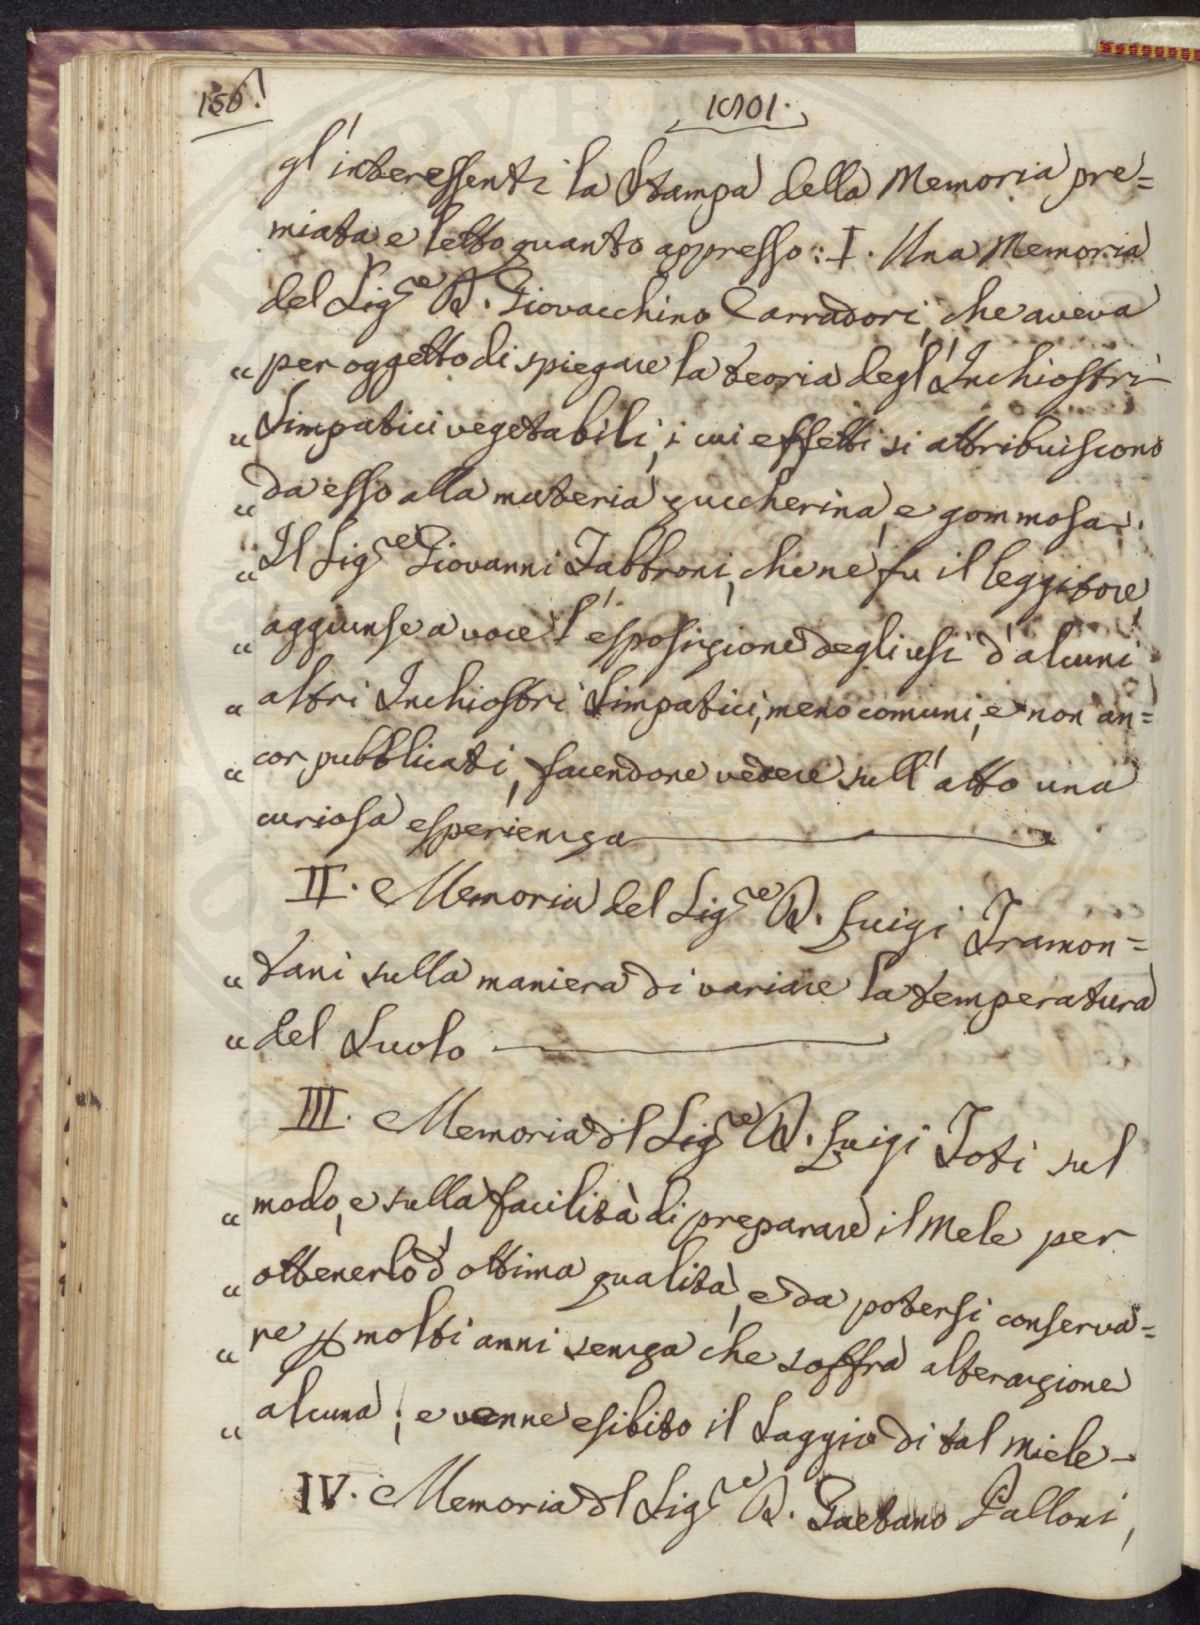 150.
1801.
gl'interessenti la Stampa della Memoria pre=
miata e letto quanto appresso: I. Una Memoria
del Sig.re D. Giovacchino Carradori, che aveva
" per oggetto di spiegare la teoria degl'Inchiostri
" Simpatici vegetabili, i cui effetti si attribuiscono
" da esso alla materia zuccherina, e gommosa.
" Il Sig.re Giovanni Fabbroni, che ne fu il leggitore,
" aggiunse a voce l'esposizione degli usi d'alcuni
" altri Inchiostri Simpatici, meno comuni, e non an=
" cor pubblicati, facendone vedere sull'atto una
curiosa esperienza
II. Memoria del Sig.re D. Luigi Tramon=
" tani sulla maniera di variare la temperatura
" del Suolo
III. Memoria dl Sig.re D. Luigi Toti sul
" modo, e sulla facilità di preparare il Mele per
" ottenerlo d'ottima qualità, e da potersi conserva=
" re p molti anni senza che soffra alterazione
" alcuna; e venne esibito il Saggio di tal miele
IV. Memoria dl Sig.re D. Gaetano Palloni,